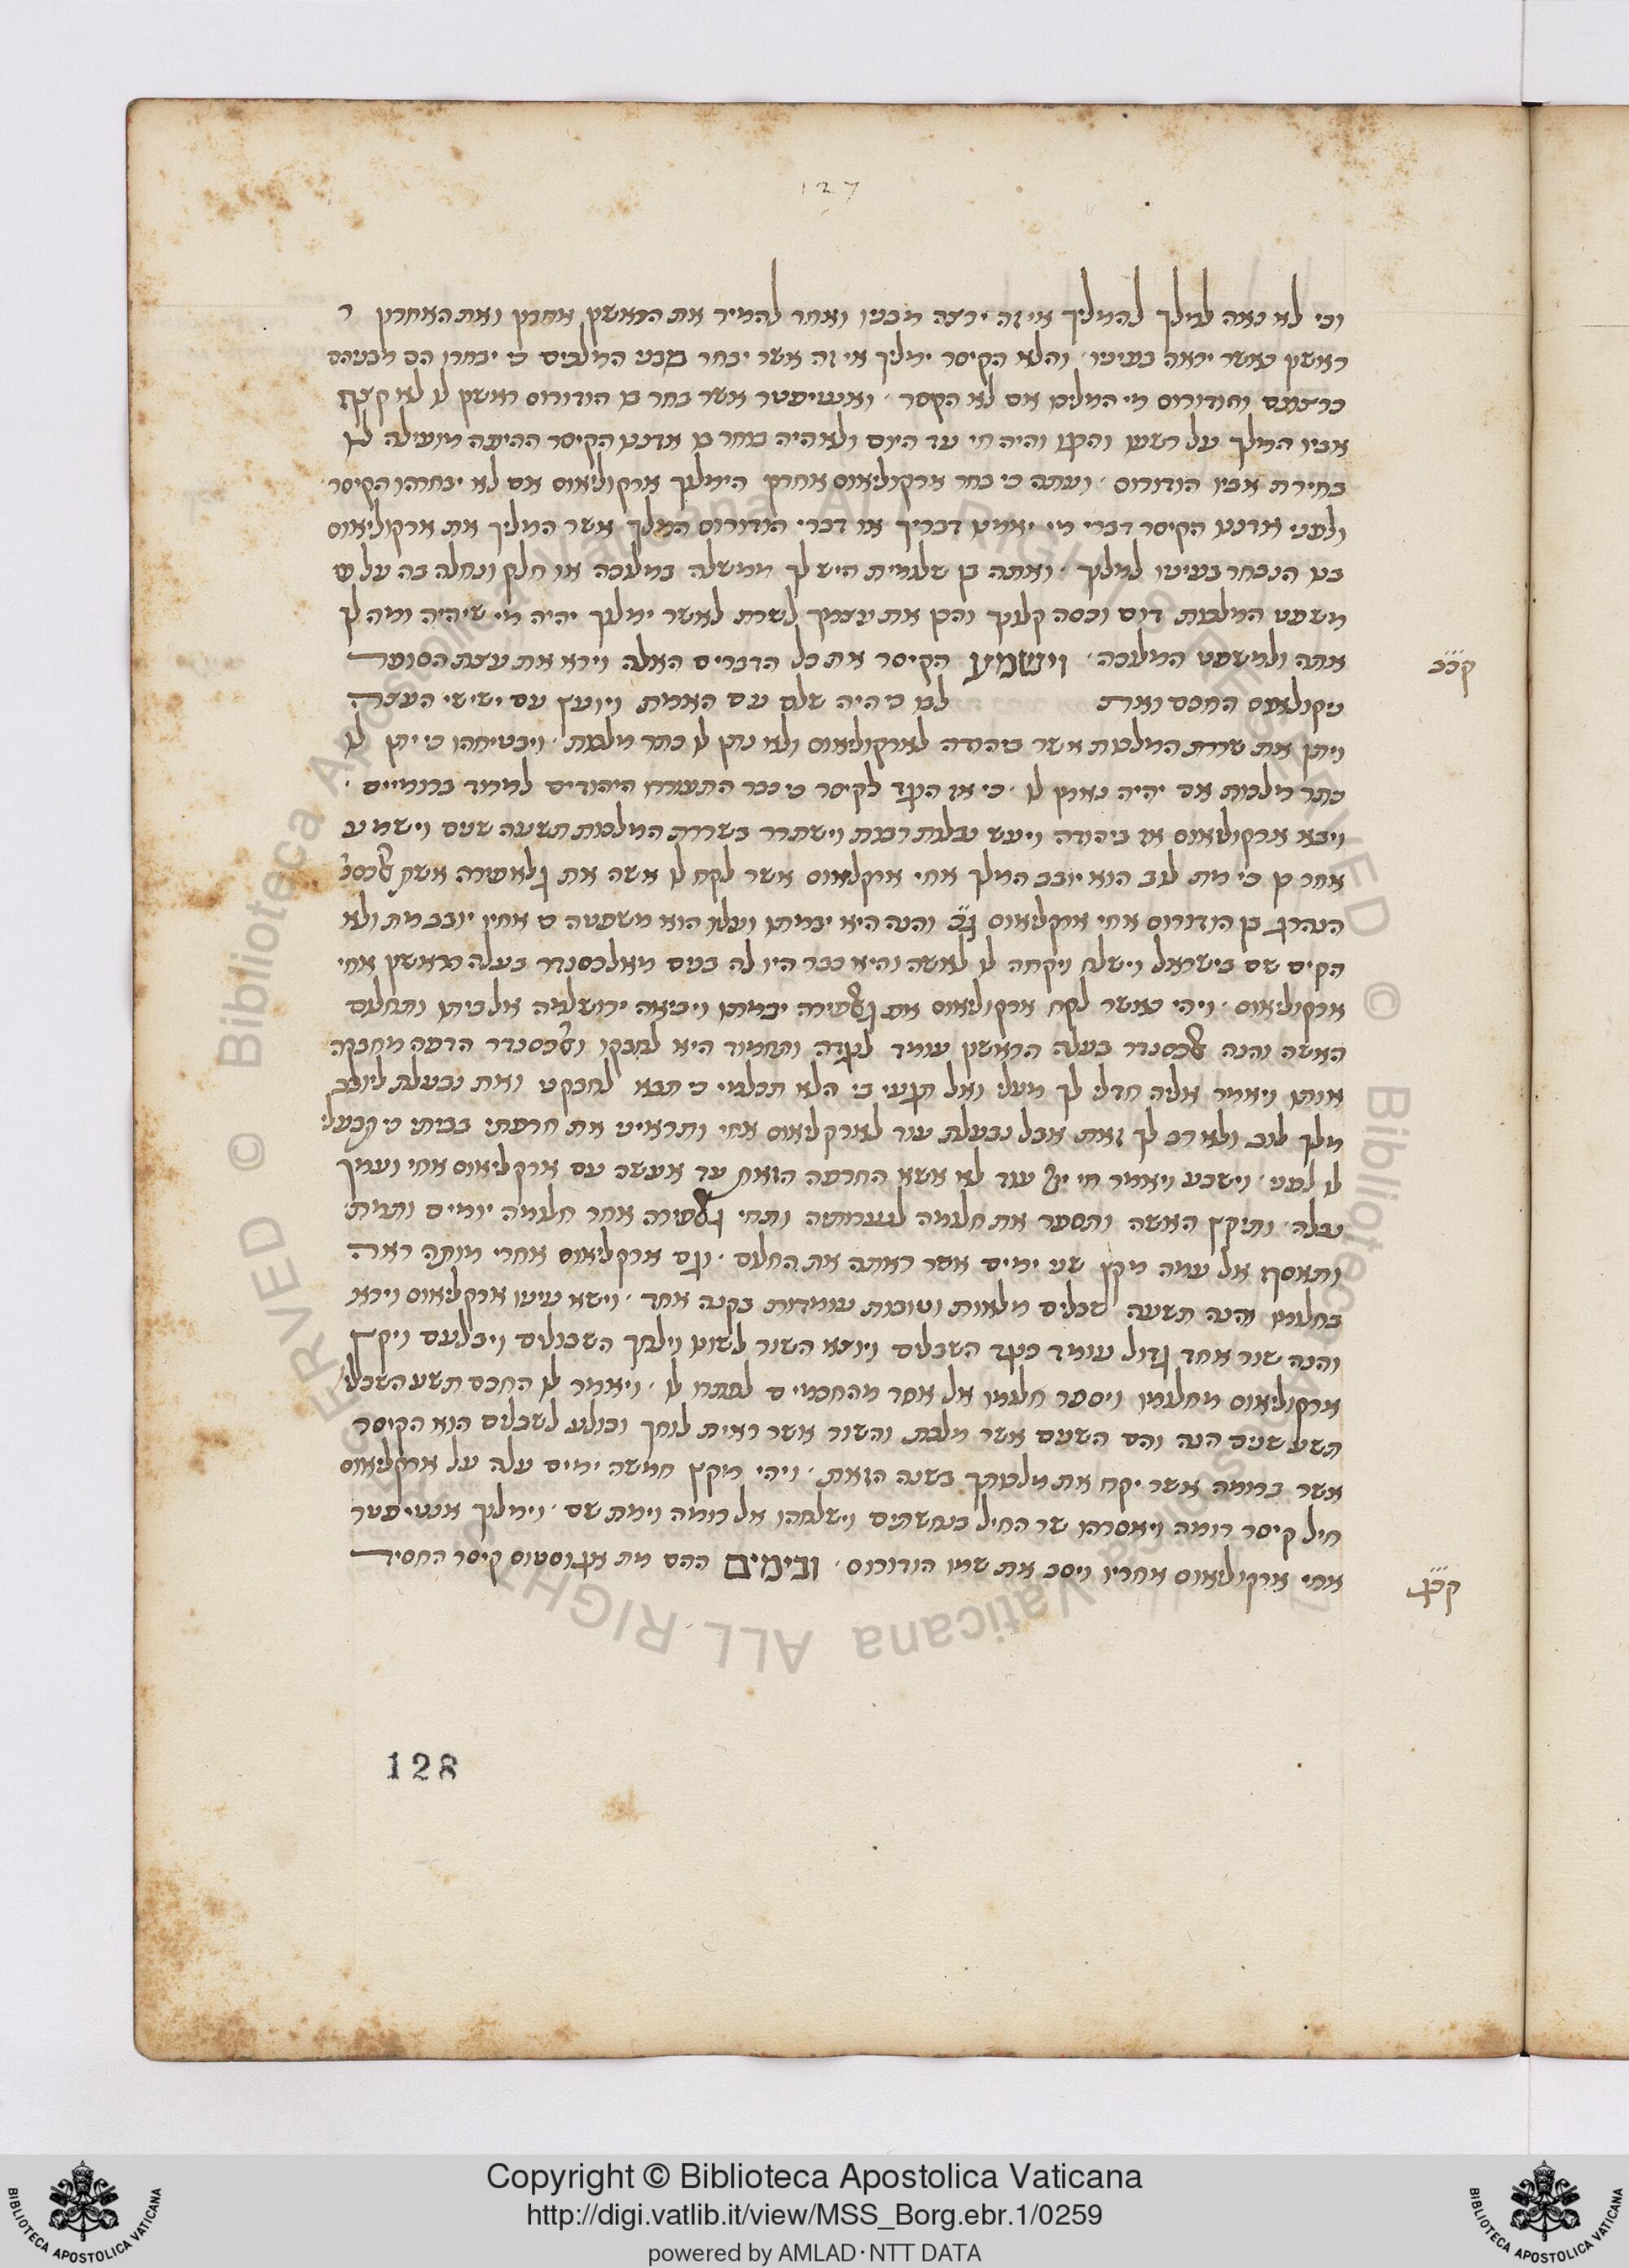 127
וכי לא נאה למלך להמליך אי זה ירצה מבניו ואחר להמיר את הראשון אחרון ואת האחרון ר
ראשון כאשר יראה בעיניו והלא הקיסר ימליך אי זה אשר יבחר מבני המלכים כי יבחרו הם מבניהם
כרצונם והודורוס מי המליכו אם לא הקסר ואנטיפטר אשר בחר בו הודורוס ראשון לו לא קצף
אביו המלך על רשעו והרגו והיה חי עד היום ולא היה בוחר בו אדננו הקיסר ההיתה מועילה לו
בחירת אביו הודורוס ועתה כי בחר ארקוליאוס אחרון הימלוך ארקוליאוס אם לא יבחרהו הקיסר
ולפני אדננו הקיסר דברי מי יאמינו דבריך או דברי הודורוס המלך אשר המליך את ארקוליאוס
בנו הנבחר בעיניו למלוך ואתה בן שלומית היש לך ממשלה במלוכה או חלק ונחלה בה על
משפט המלכות דום וכסה קלונך והכן את עצמך לשרת לאשר ימלוך יהיה מי שיהיה ומה לך
אתה ולמשפט המלוכה וישמע הקיסר את כל הדברים האלה וירא את עצת הסופר
קכב
ניקולאוס החכם ואת לבו כי היה שלם עם האמת ויועץ עם ישישי העצה
ויתן את שררת המלכות אשר ביהודה לארקוליאוס ולא נתן לו כתר מלכות ויבטיחהו כי יתן לו
כתר מלכות אם יהיה נאמן לו כי אז הוגד לקיסר כי כבר התעודדו היהודים למרוד ברומיים
ויבא ארקוליאוס אז ביהודה ויעש נבלות רבות וישתרר בשררת המלכות תשעה שנים וישמע
אחר כן כי מת לוב הוא יובב המלך אחי ארקלאוס אשר לקח לו אשה את גלאפירה אשת אלכסנ
ההרוג בן הודורוס אחי ארקליאוס גב והנה היא יבמתו ועליו הוא משפטה כי אחיו יובב מת ולא
הקים שם בישראל וישלח ויקחה לו לאשה והיא כבר היו לה בנים מאלכסנדר בעלה הראשון אחי
ארקוליאוס ויהי כאשר לקח ארקוליאוס את גלפירה יבמתו ויביאה ירושלמה אל ביתו ותחלום
האשה והנה אלכסנדר בעלה הראשון עומד לנגדה ותחמוד היא לחבקו ואלכסנדר הדפה מחבקה
אותו ויאמר אליה חדלי לך מעלי ואל תגעי בי הלא תכלמי כי תבא לחבקני ואת נבעלת ליובב
מלך לוב ולא רב לך זאת אבל נבעלת עוד לארקליאוס אחי ותראיני את חרפתי בביתי כי תבעלי
לו לפני וישבע ויאמר חי יי עוד לא אשא החרפה הזאת עד אעשב עם ארקליאוס אחי ועמך
נבלה ותיקץ האשה ותספר את חלומה לנערותיה ותחי גלפירה אחר חלומה יומים ותמת
ותאסף אל עמה מקץ שני ימים אשר ראתה את החלום וגם ארקליאוס אחרי מותה ראה
בחלומו והנה תשעה שבלים מלאות וטובות עומדות בקנה אחד וישא עיניו ארקליאוס וירא
והנה שור אחד גדול עומד כנגד השבלים ויוצא השור לשונו וילחך השבולים ויבלעם ויקץ
ארקוליאוס מחלומו ויספר חלומו אל אחד מהחכמים לפתח לו ויאמר לו החכם תשע השבלי
תשע שנים הנה והם השנים אשר מלכת והשור אשר ראית לוחך ובולע לשבלים הוא הקיסר
אשר ברומה אשר יקח את מלכותך בשנה הזאת ויהי מקץ חמשה ימים עלה על ארקליאוס
חיל קיסר רומה ויאסרהו שר החיל בנחשתים וישלחהו אל רומה וימת שם וימלוך אנטיפטר
אחי ארקוליאוס אחריו ויסב את שמו הודורוס ובימים ההם מת אגוסטוס קיסר החסיד
קכג
128
Copyright © Biblioteca Apostolica Vaticana
http://digi.vatlib.it/view/MSS_Borg.ebr.1/0259
powered by AMLAD·NTT DATA